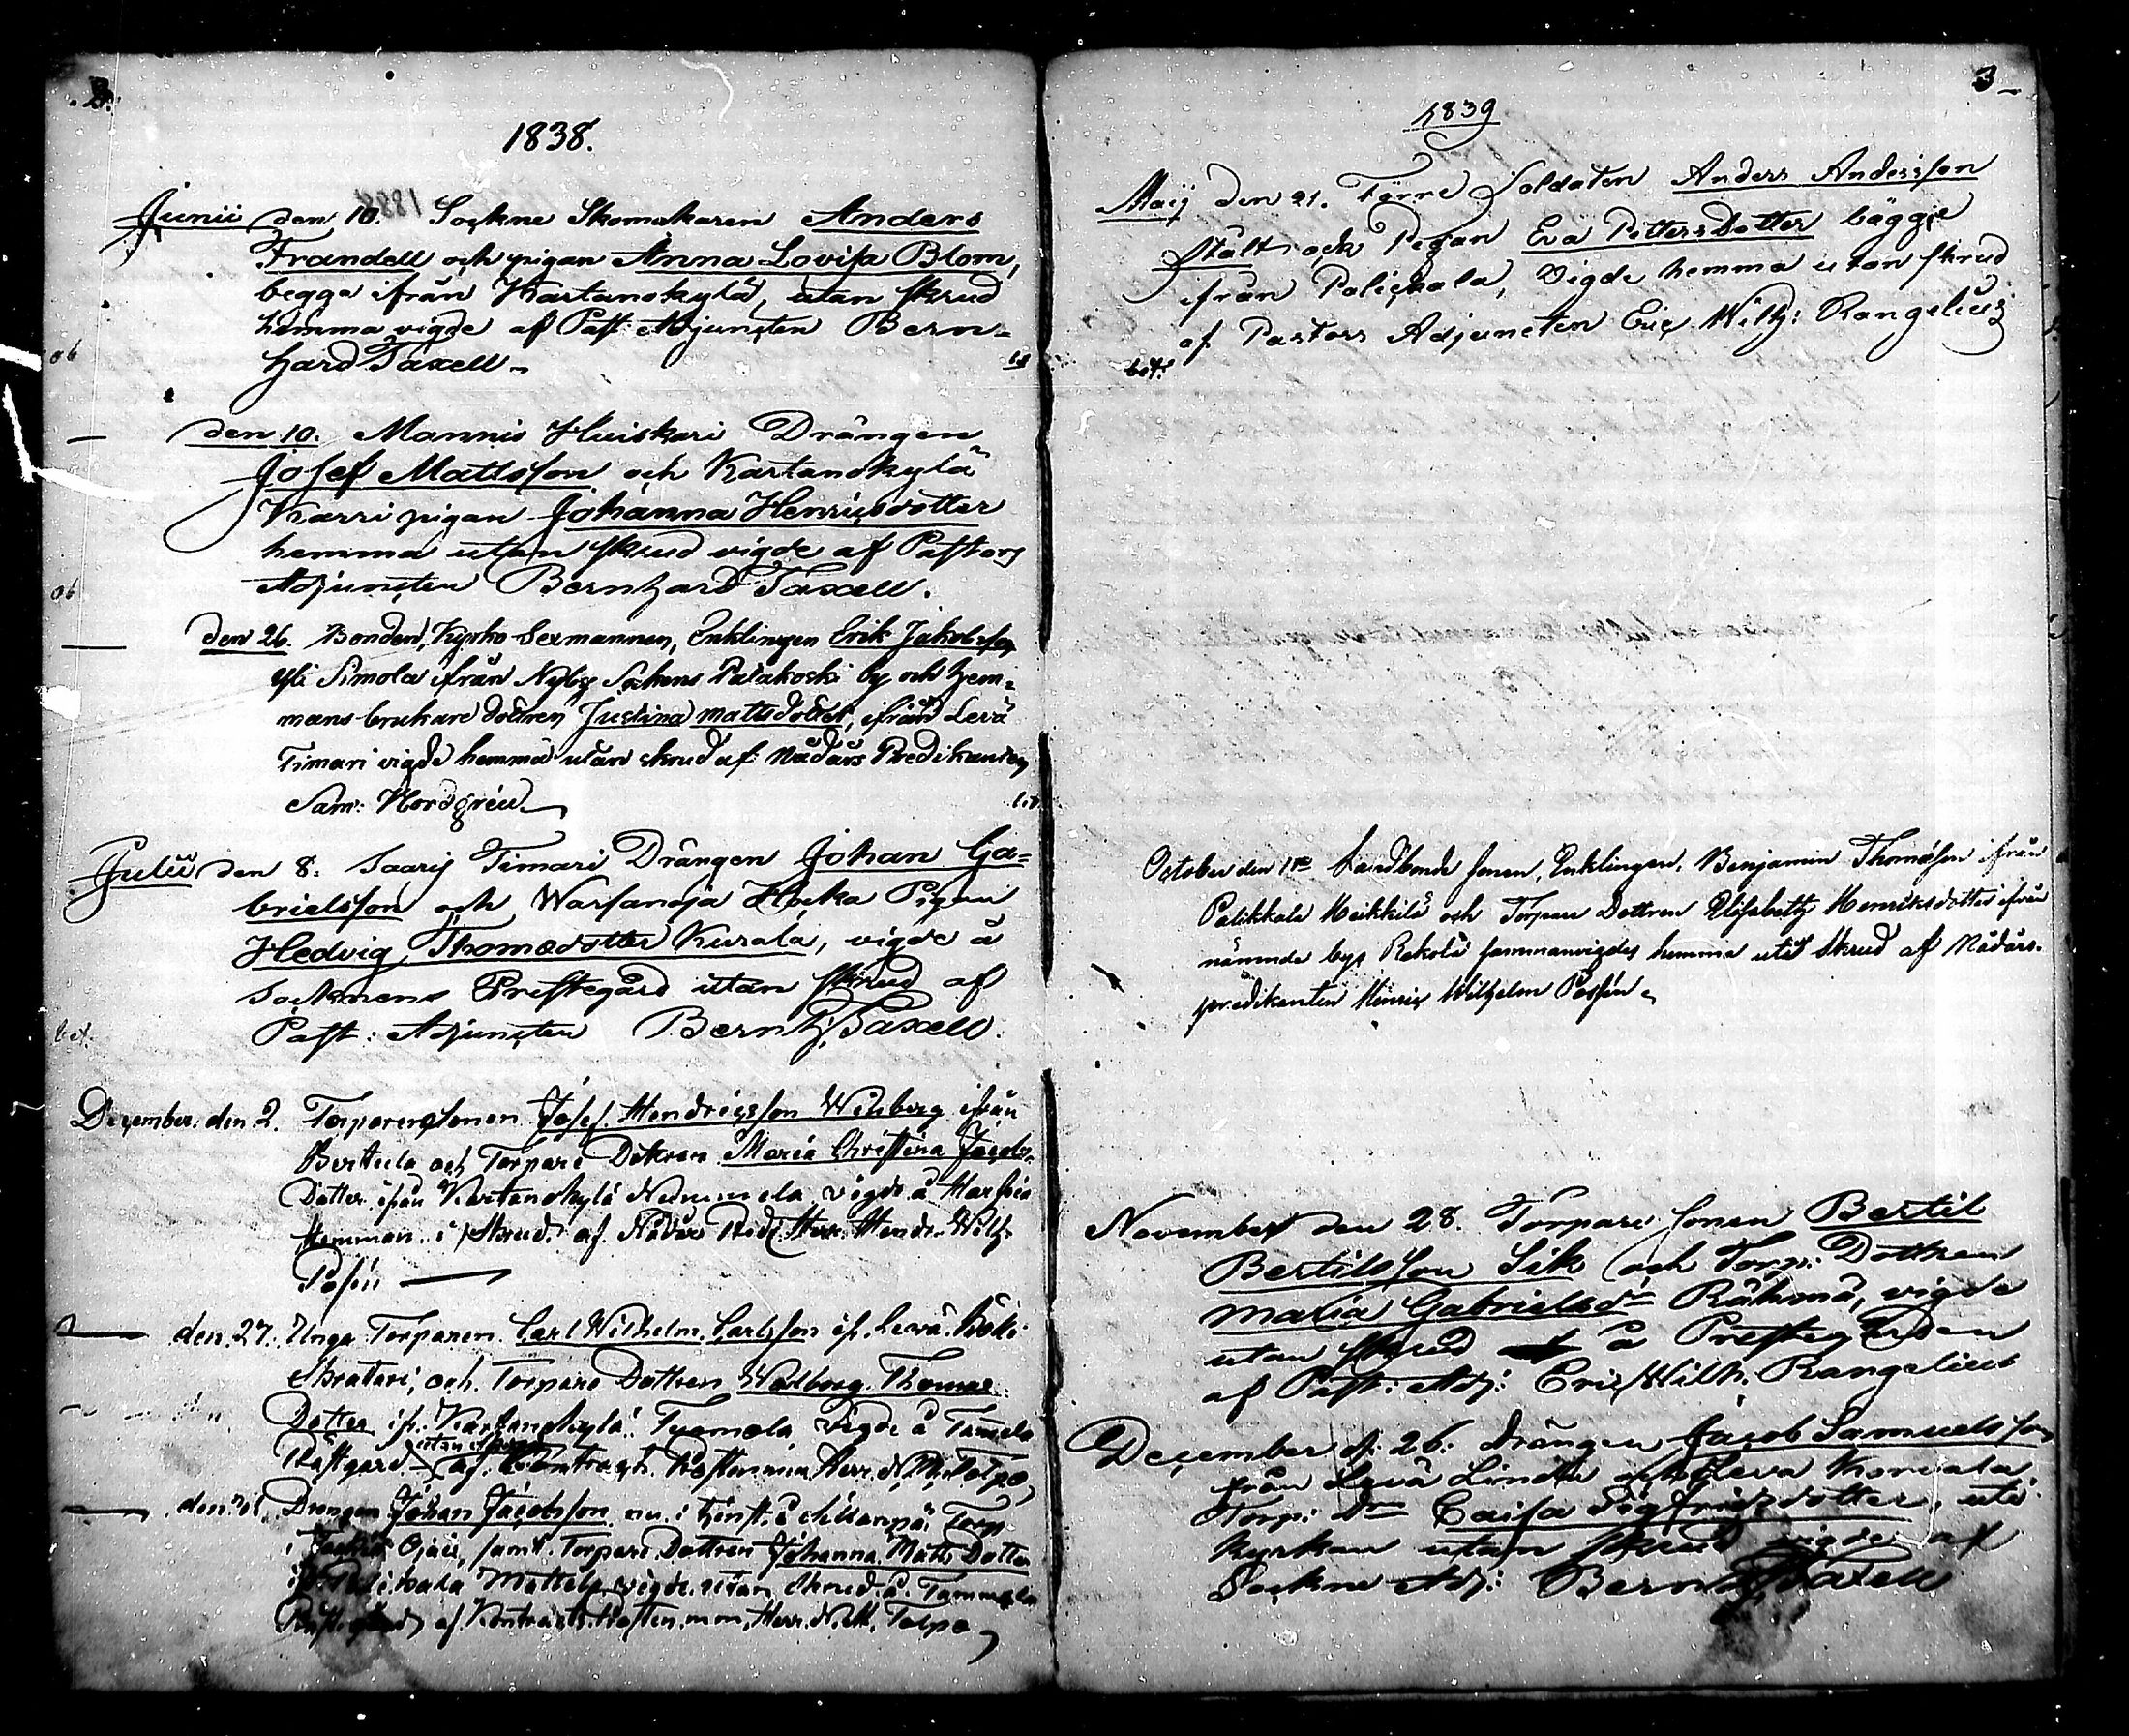 2.
1838.
Junii den 10. Sockne Skomakaren Anders
Frandell och pigan Anna Lovisa Blom,
begga ifrån Kartanokylä, utan skrud
hemma vigde af Past: Adjuncten Bern=
hard Taxell.
ob
den 10. Mannis Huiskari Drängen
Josef Mattsson och Kartanokylä
Karri pigan Johanna Henricsdotter
hemma utan skrud vigde af Pastors
Adjuncten Bernhard Taxell.
ob
den 26. Bonden, Kyrko Sexmannen, Enklingen Erik Jakobsson
Simola ifrån Nyby Sockens Palakoski by och hem=
mans brukare dottren Justina Mattsdotter, ifrån Levä
Timari vigde hemma utan skrud af Nådårs Predikanten
Sam: Nordgren
Julii den 8. Saarij Timari Drängen Johan Ga=
brielsson och Warsanoja Höcka Pigan
Hedvig Thomædotter Kurala, vigde å
Socknens Prestegård utan skrud af
Past: Adjuncten Bernh: Taxell.
bet.
December den 2. Torparesonen Josef Hendricsson Widberg ifrån
Berttula och Torpare Dottren Maria Christina Jacobs
Dotter ifrån Kartanokylä Nummela vigde å
Hemman i skrud af Nådårs Pred. Herr Hendr. Wilh.
Posén
den 27. Unga Torparen Carl Wilhelm Carlsson if. Levä
och Torpare Dottren Walborg Thomas
Dotter if. Kartanokylä Tyomola vigde å Tammela
Prästgård utan skrud af Contracts Prosten Herr N. M. Tolpo
Drängen Johan Jacobsson nu i tjenst å Torp
i Ojais, samt Torpare Dottren Johanna Matts Dotter
if. Palikala Mattela vigde utan Skrud å Tammela
Präst.gård af Kontracts Prosten m.m. Herr N. M. Tolpo
3
1839
Maij den 21. Förre Soldaten Anders Andersson
Stålt och Pigan Eva Pettersdotter bägge
ifrån Palickala, Vigde hemma utan skrud
af Pastors Adjuncten Eric Wilh: Rangelius
bet.
October den Landbonde sonen, Enklingen, Benjamin Thomasson ifrån
Palikkala Heikkilä och Torpare Dottren Elisabeth Henriksdotter ifrån
nämnde by Rekola sammanvigdes hemma utan Skrud af Nådårs.
predikanten Henric Wilhelm Posén
November den 28. Torpare sonen Bertil
Bertilsson Sik och Torp: Dottren
Maria Gabrielsdr Rähmä, vigde
utan skrud å Prestegården
af Past: Adj: Eric Wilh. Rangelius
December d. 26. Drängen Jacob Samuelsson
från Levä Lindu och Leva Korvala
Torp: dr Caisa Sigfridsdotter, uti
kyrkan utan skrud vigde af
Sockne Adj: Bernh: Taxell